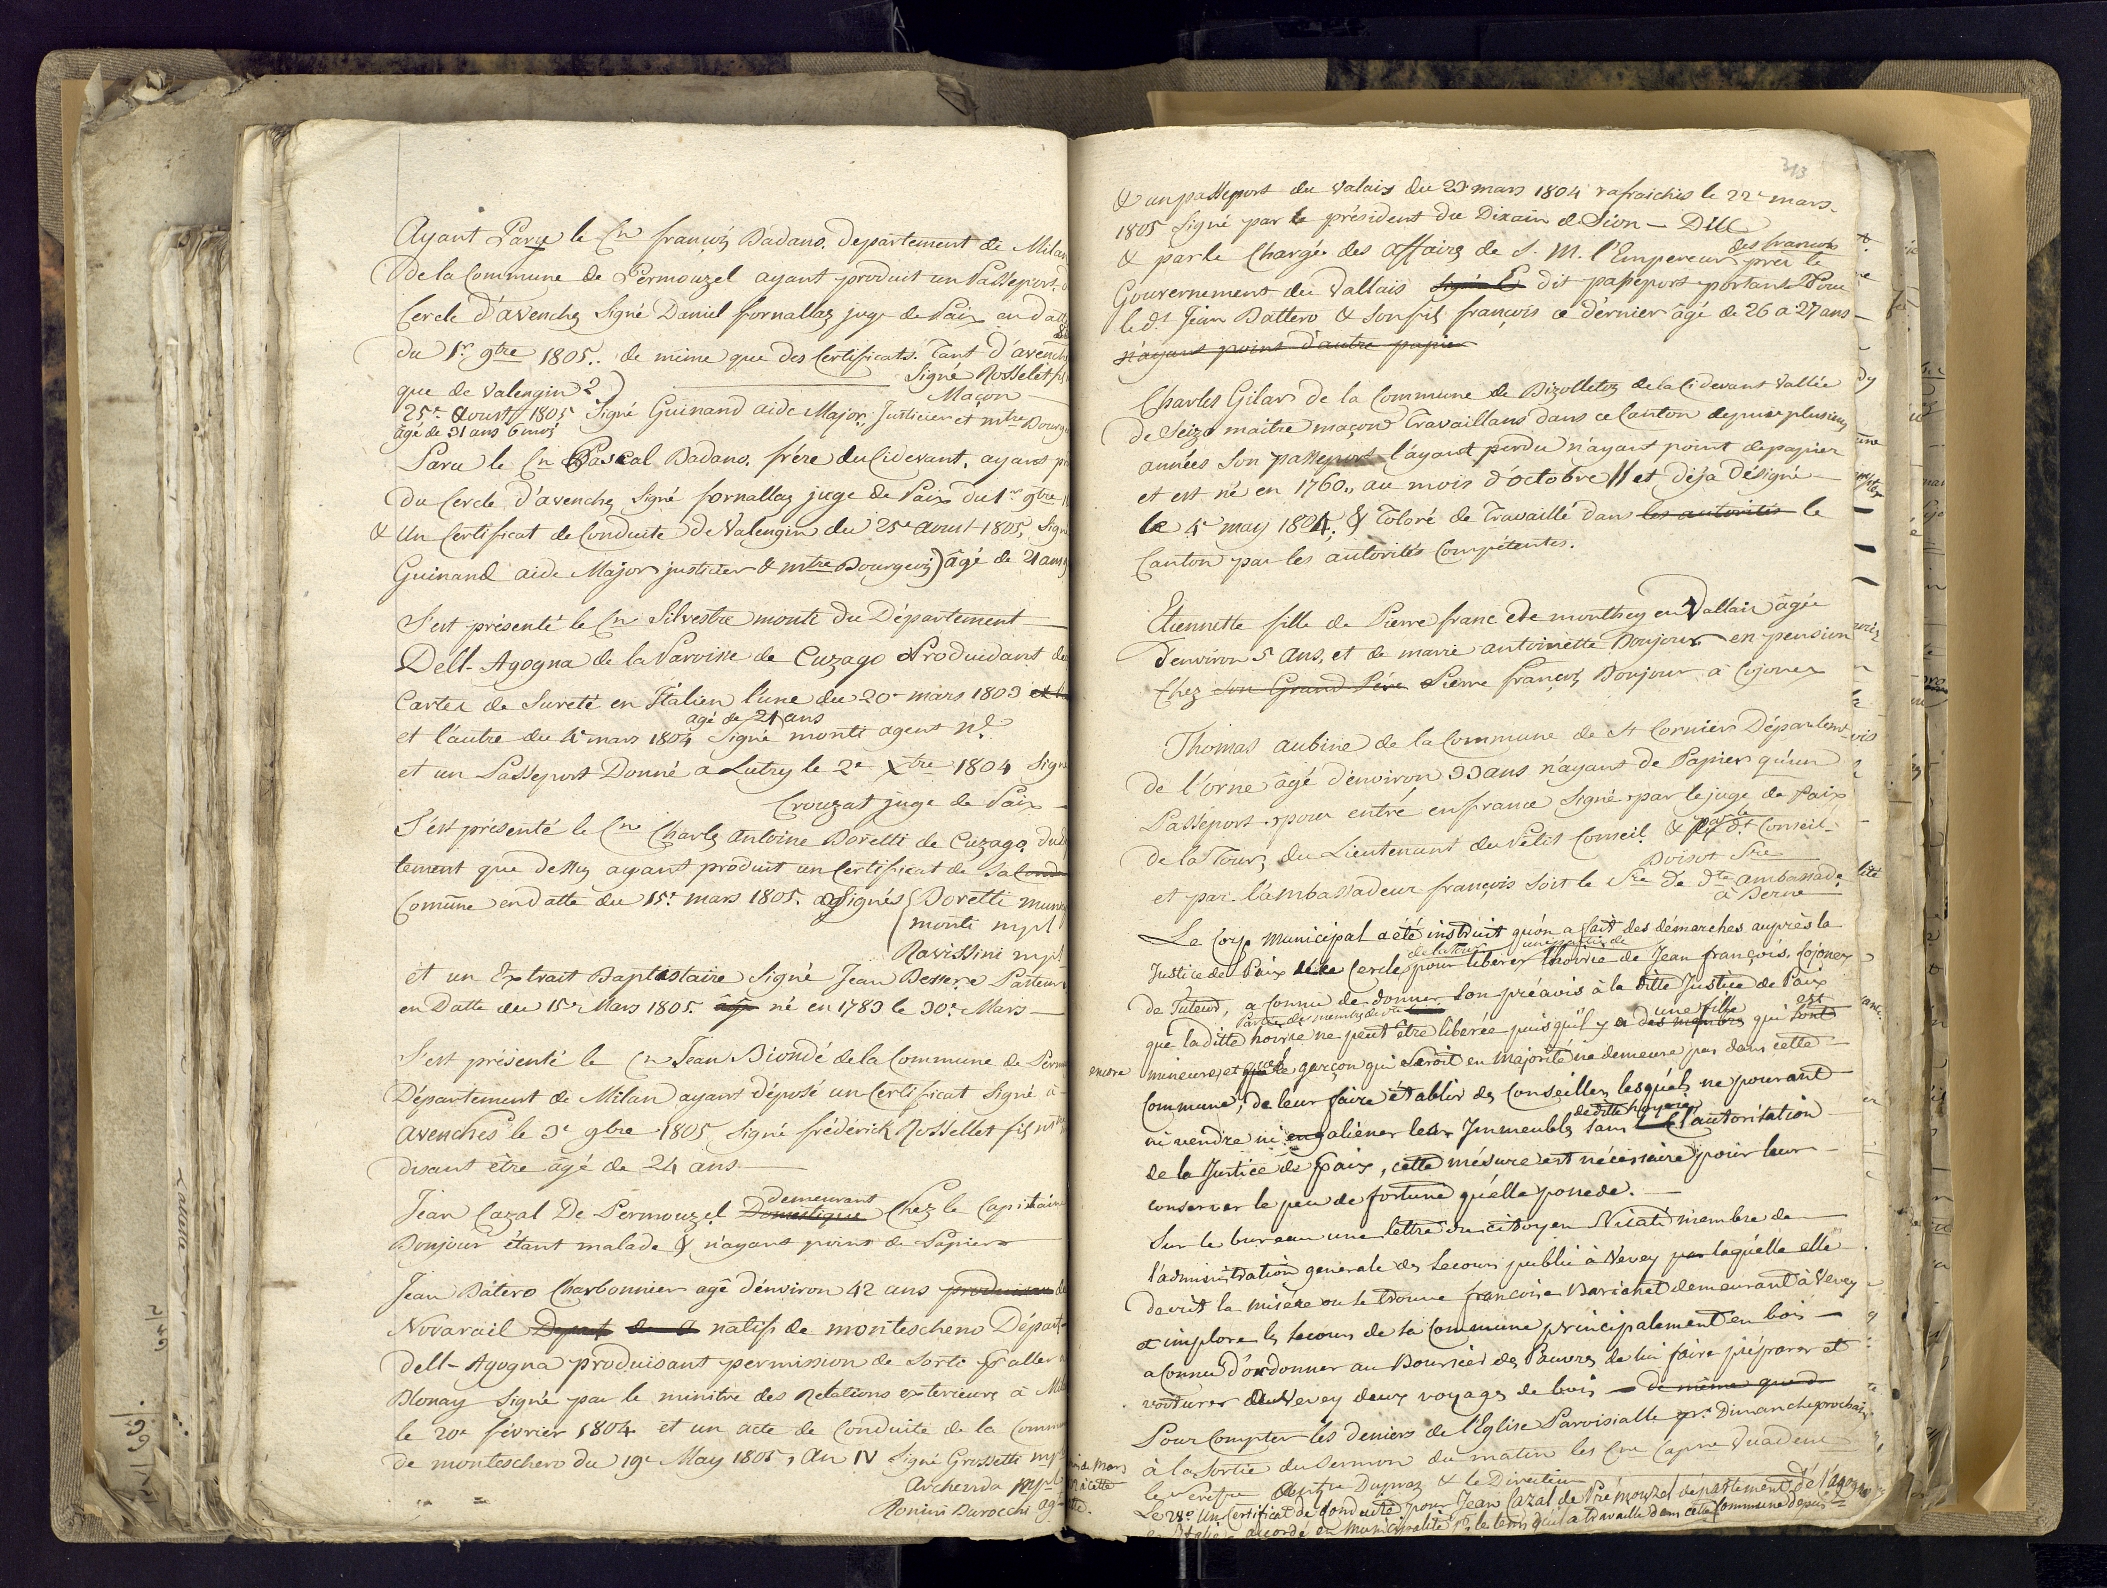 Ayant Paru le Cn françois Badano, departement de Milan
de la Commune de Permouzel ayant produit un Passeport d
Cercle d'avenches Signé Daniel fornallaz juge de Paix en datt
du 1r. 9bre 1805. de même que des Certificats. Tant d'avenche
que de Valengin Signé Rosselet fils
Maçon
25e Aoust 1805 Signé Guinand aide Major, Justicier et mtre Bourge
âgé de 31 ans 6 mois
Paru le Cn Pascal Badano, frère du Cidevant, ayant pr
du Cercle d'avenches Signé fornallaz juge de Paix du 1r 9bre
& Un Certificat de Conduite de Valengin du 25e aoust 1805, Signé
Guinand aide Major justicier & mtre Bourgeois) âgé de 21 ans
S'est présenté le Cn Silvestre monti du Département
Dell-Agogna de la Paroisse de Cuzago Produidant de
Cartes de Sureté en Italien l'une du 20e mars 1803
âgé de 21 ans
et l'autre du 4e mars 1804 Signé monti agent nl.
et un Passeport Donné a Lutry le 2e Xbre 1804 Signé
Crouzat juge de Paix
S'est présenté le Cn Charles Antoine Boretti de Cuzago, dud
tement que dessus ayant produit un Certificat de Sa
Comune en datte du 15e. mars 1805. Signés (Boretti munic
(monti mpl
Ravissini mpl
et un Extrait Baptistaire Signé Jean Bessero Pasteur
en Datte du 15e Mars 1805. né en 1783 le 30e. Mars
S'est présenté le Cn Jean Biondé de la Commune de Perm
Département de Milan ayant déposé un Certificat Signé à
avenches le 3e 9bre 1805 Signé fréderik Rossellet fils
disant être âgé de 24 ans.
Jean Cazal De Permouzel Domestique demeurant Chez le Capitaine
Bonjour étant malade & n'ayant point de Papiers
Jean Bâtero Charbonnier agé d'environ 42 ans produisan de
Novarail natif de montescheno Départ
dell-Agogna produisant permission de Sorti pr aller
Blonay Signé par le ministre des Relations extérieures à Mil
le 20e février 1804 et un acte de Conduite de la Commu
de montescheno du 19e May 1805, An IV Signé Grossetti mpl
Archenda mpl
Ronini Barocchi agt
313
& un passeport du Valais du 23 mars 1804 rafraichis le 22e mars
1805 Signé par le président du Dixain de Sion - Duc
& par le Chargé des affaires de S. M. l'Empereur des francois près le
Gouvernement du Vallais dit passeport portant Pour
le dt Jean Battero & Son fils françois ce dernier âgé de 26 a 27 ans
n'ayant point d'autre papier
Charles Gilar de la Commune de Bizolletoz de la Cidevant Vallée
de Seizo maitre maçon Travaillans dans ce Canton depuis plusieurs
années Son passeport l'ayant perdu n'ayant point de papier
et est né en 1760,, au mois d'octobre // et déja désigné
le 4e may 1804. & Toloré de Travaillé dans les autorités le
Canton par les autorités Compétentes.
Etiennette fille de Pierre franc de monthey en Vallais âgée
d'environ 5 ans, et de marie antoinette Bonjour en pension
Chez son Grand Père Pierre françois Bonjour à Cojonex
Thomas aubine de la Commune de St Cornier Départemt
de l'orne âgé d'environ 33 ans n'ayant de Papier qu'un
Passeport pour entré en france Signé par le juge de Paix
de la Tour, du Lieutenant du Petit Conseil & par le dt Conseil
Boisot Sre
et par l'ambassadeur françois soit le Sre de dte ambassade
à Berne
Le Corps Municipal a été instruit qu'on a fait des démarches auprès la
Justice de Paix de ce Cercle de la Tour pour liberer une partie de l'hoirie de Jean françois Cojonex
de Tuteur, a Connu de donner Son préavis à la ditte Justice de Paix
que la ditte hoirie ne peut être liberée puisqu'il y a des membres une fille qui sont est
encore mineure, et que le garçon qui Seroit en majorité ne demeure pas dans cette
Commune; de leur faire établir des Conseillers lesquels ne pourant
ni vendre ni engaliéner leur Immeubles de ditte hoyerie sans l'autoritation
de la Justice de paix, cette mésure est nécessaire pour leur
conserver le peu de fortune qu'elle possede.
Sur le bureau une lettre du citoyen Nicati membre de
l'administration générale des Secours publié à Vevey par laquelle elle
decrit la misére ou se trouve françoise Barichet demeurant à Vevey
& implore les secours de sa Commune principalement en bois
a Connu d'ordonner au Boursier des Pauvres de lui faire préparer et
voiturer à Vevey deux voyages de bois de même que d
Pour Compter les deniers de l'Eglise Paroisialle pr. Dimanche prochain
à la Sortie du Sermon du matin les Cns
& le Directeur
Le 28e Un Certificat de Conduite pour Jean Cazal de Prémouzel département de l'agogna
accordé en Municipalité pr. le tems qu'il a travaillé dans cette Commune depuis